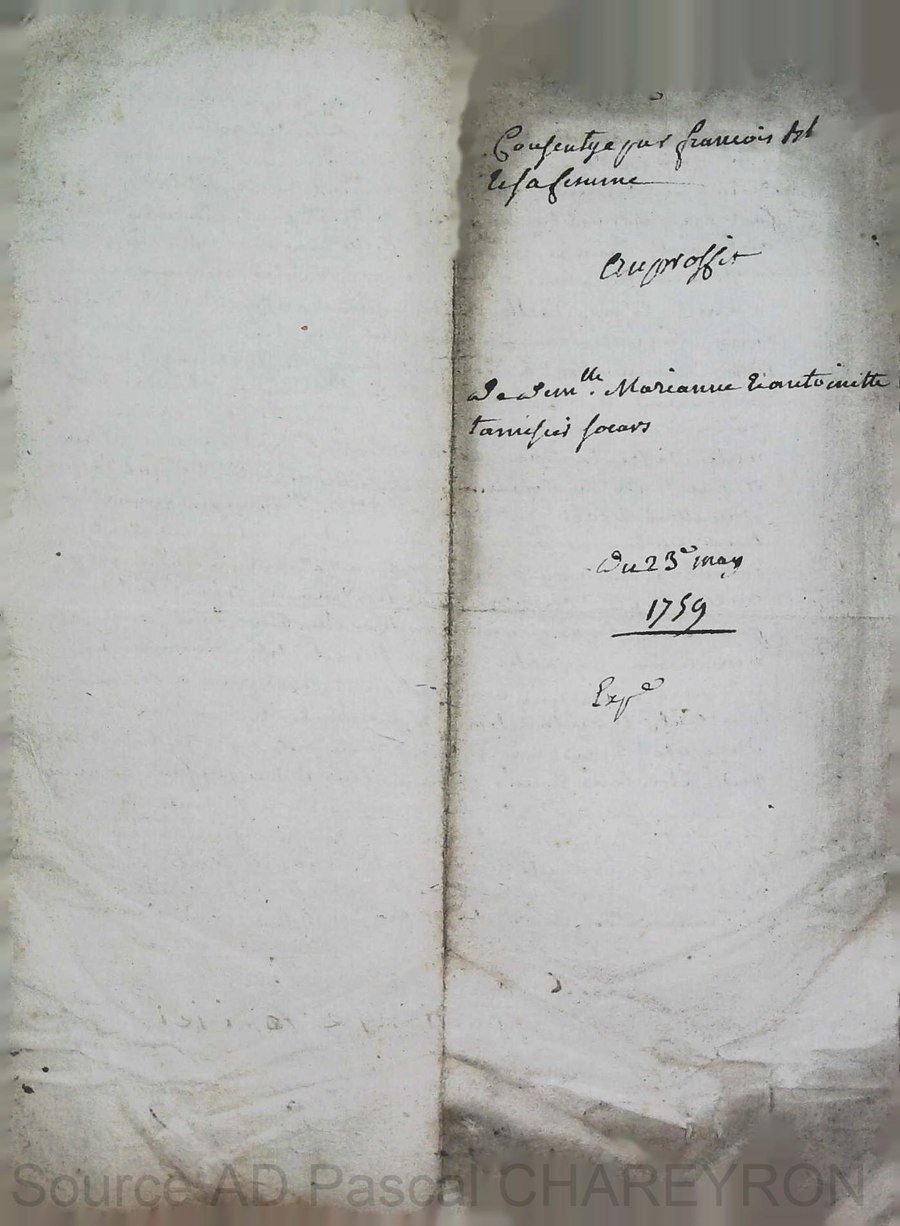 Consentye par francois
et sa femme
au proffit
de dem.lle Marianne & antoinette
tamisier soeurs
du 23e may
1759
Expe
Source AD Pascal CHAREYRON